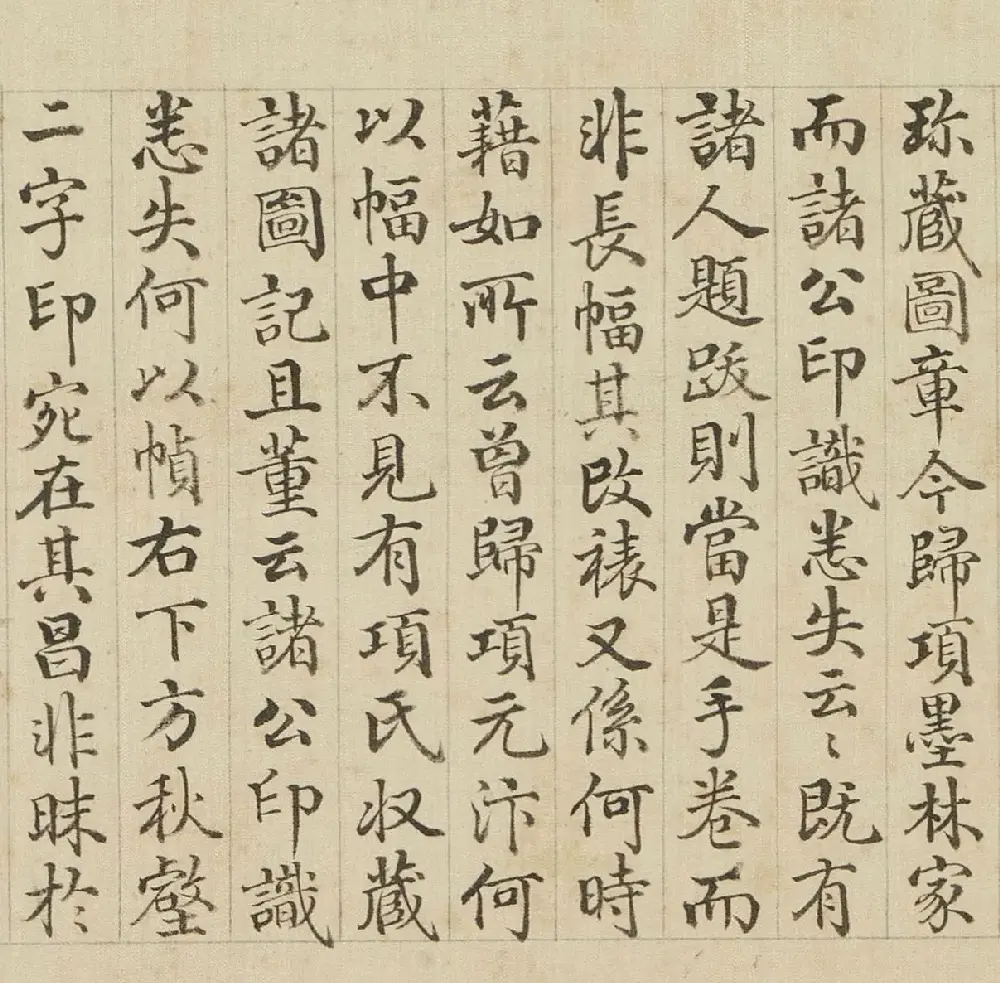 珎蔵圖章今歸項墨林家
而諸公印識悉失云〻既有
諸人題跋則當是手卷而
非長幅其改裱又係何時
藉如所云曾歸項元汴何
以幅中不見有項氏収蔵
諸圖記且董云諸公印識
悉失何以幀右下方秋壑
二字印宛在其昌非昧於